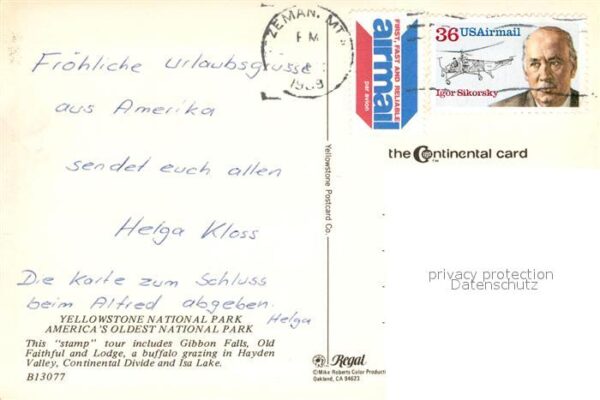 Fröhliche Urlaubsgrüsse
aus Amerika
sendet euch allen
Helga Kloss
Die Karte zum Schluss
beim Alfred abgeben.
Helga
YELLOWSTONE NATIONAL PARK
AMERICA'S OLDEST NATIONAL PARK
This "stamp" tour includes Gibbon Falls, Old
Faithful and Lodge, a buffalo grazing in Hayden
Valley, Continental Divide and Isa Lake.
B13077
Yellowstone Postcard Co.
ZEMAN, MT
PM
1989
FIRST, FAST AND RELIABLE
airmail
par avion
36 USAirmail
Igor Sikorsky
the Continental card
privacy protection
Datenschutz
Regal
©Mike Roberts Color Producti
Oakland, CA 94623